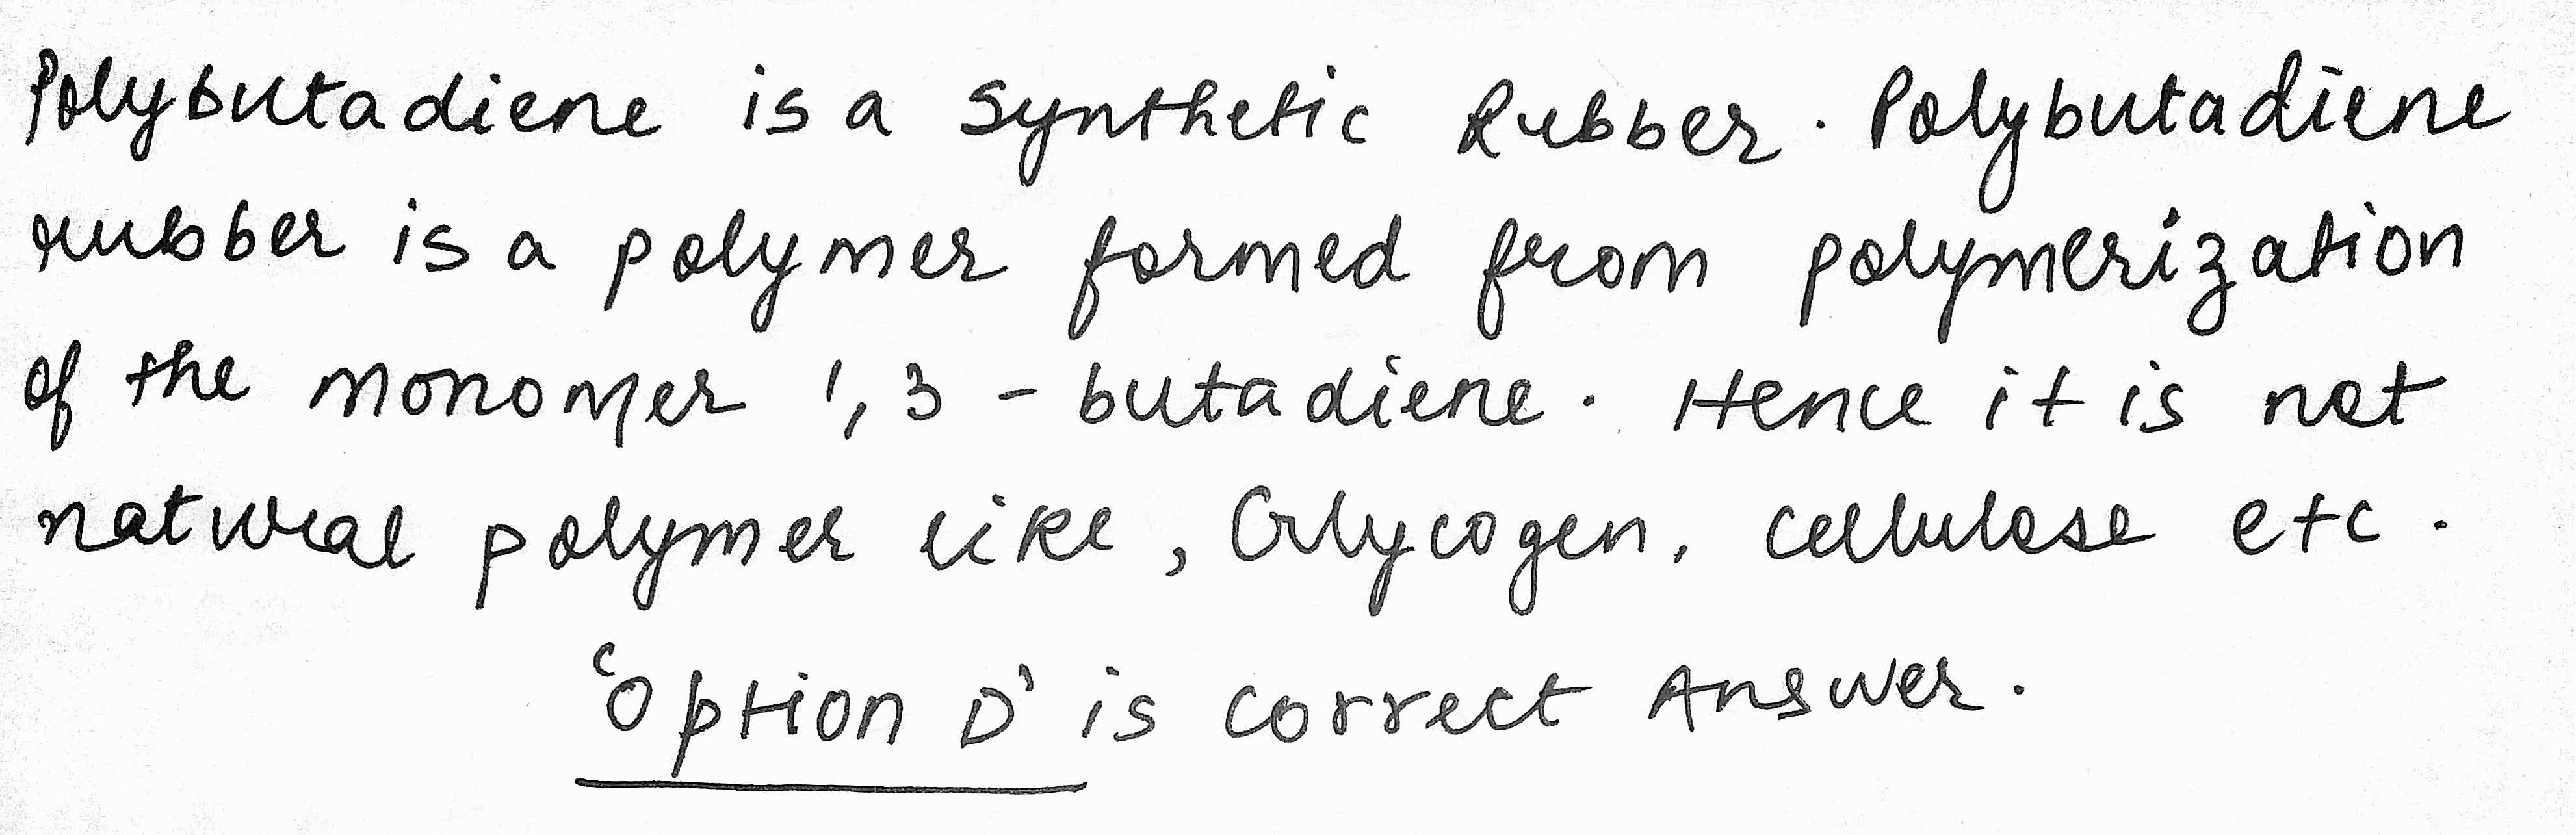 Polybutadiene is a synthetic Rubber. Polybutadiene
rubber is a polymer formed from polymerization
of the monomer 1,3 - butadiene. Hence it is not
natural polymer like, Glycogen, cellulose etc.
'Option D' is correct Answer.